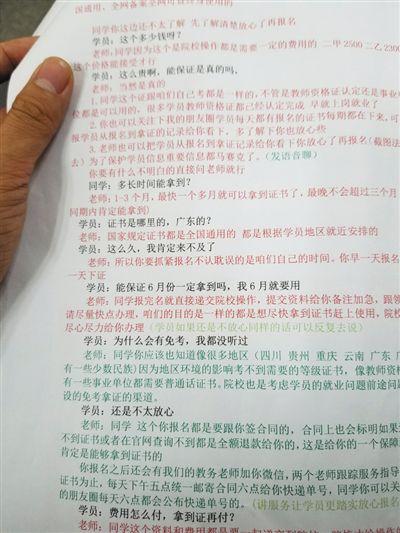 国通用、全网备案全网可查终身使用的
同学你这边还不太了解 先了解清楚放心了再报名
学员：这个多少钱呀？
老师：同学因为这个是院校操作都是需要一定的费用的 二甲2500二乙2300
这个价格能接受才行
学员：这么贵啊，能保证是真的吗，
老师：当然是真的
1.同学这个证跟咱们自己考都是一样的，不管是教师资格证认定还是事业单
位都是可以用的，很多学员教师资格证都已经认定完成 早就上岗就业了
2.你也可以关注下我的朋友圈学员每天都有报名的证书每期都在下来，可
报学员从报名到拿证的记录给你看下，多了解下你也放心些
3.老师也可以把学员从报名到拿证记录给你看下你放心了再报名(截图法
去) 为了保护学员信息重要信息都马赛克了。(发语音聊)
你要有什么不明白的直接问老师就行
同学：多长时间能拿到？
老师：1-3个月，最快一个多月就可以拿到证书了，最晚不会超过三个月
同期内肯定能拿到)
学员：证书是哪里的，广东的？
老师：国家规定证书都是全国通用的 都是根据学员地区就近安排的
学员：这么久，我肯定来不及了
老师：所以你要抓紧报名不认耽误的是咱们自己的时间。你早一天报名
一天下证
学员：能保证6月份一定拿到吗，我6月就要用
老师：同学报完名就直接递交院校操作，提交资料给你备注加急，跟领
请尽量快点办理，咱们的目的是一样的都是想尽快拿到证书赶上使用，院
尽心尽力给你办理 (学员如果还是不放心同样的话可以反复去说)
学员：为什么会有免考，我都没听过
老师：同学你应该也知道像很多地区（四川 贵州 重庆 云南 广东 广
有一些少数民族)因为地区环境的影响考不到需要的等级证书，像教师资格
有一些事业单位都需要普通话证书。院校也是考虑学员的就业问题前途问题
设的免考拿证的渠道。
学员：还是不太放心
老师：同学 这个你报名都是要跟你签合同的，合同上也会标明如果
不到证书或者在官网查询不到都是全额退款给你的，这是给你的一个保障
肯定是能够拿到证书的
你报名之后还会有我们的教务老师加你微信，两个老师跟踪服务指导
证书为止，每天下午五点统一邮寄合同六点给你快递单号，同学你可以关
的朋友圈每天六点都会公布快递单号的。(讲服务让学员更踏实放心报名
学员：费用怎么付，拿到证再付？